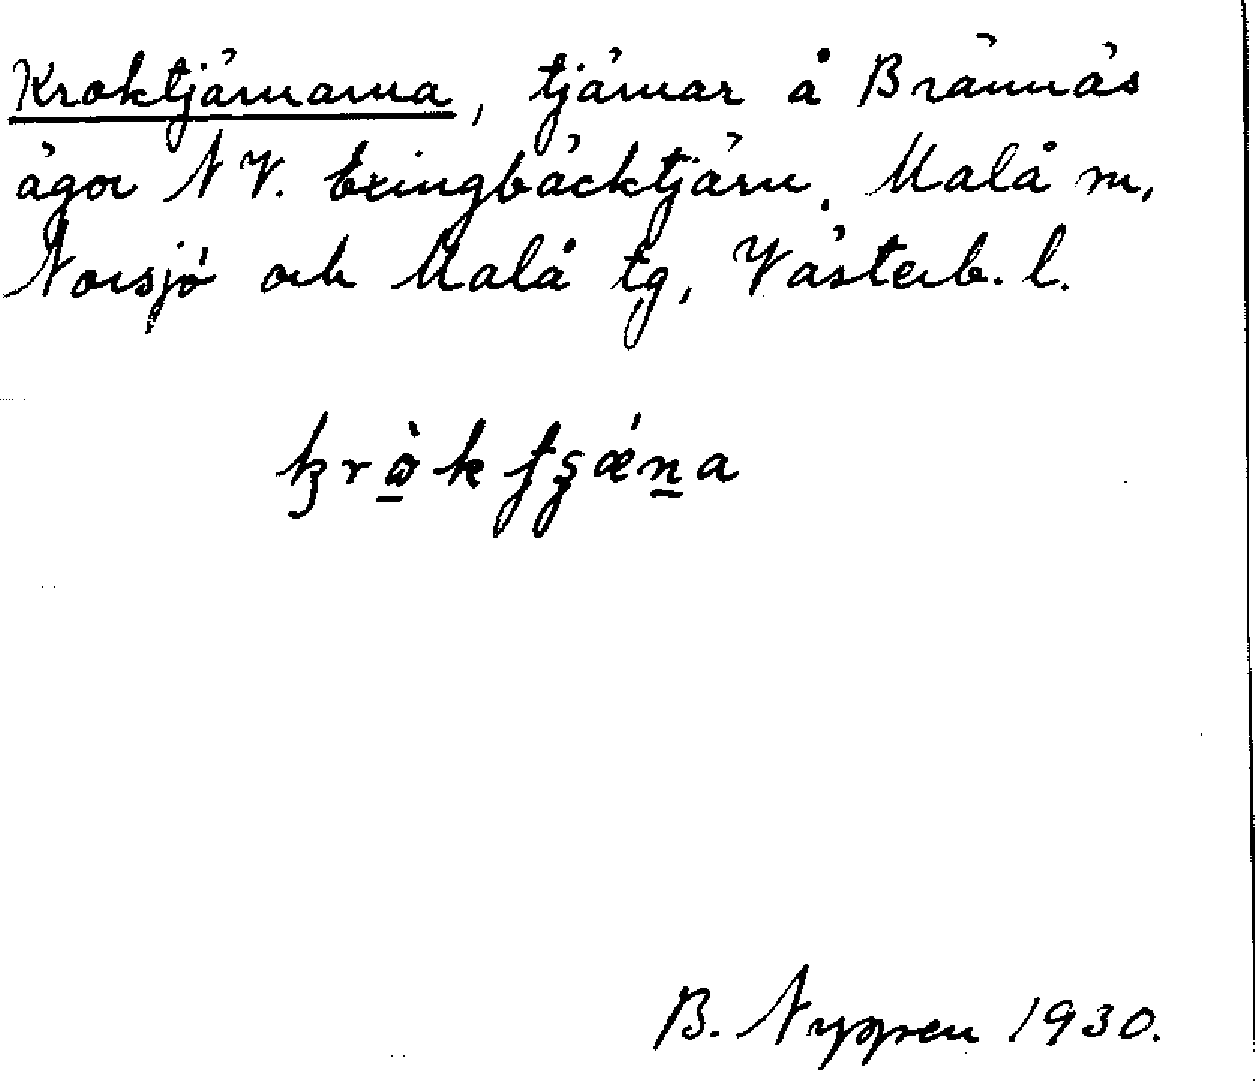 Kroktjärnarna, tjärnar å Brännäs
ägor NV. Exingbäcktjärn. Malå m,
Norsjö och Malå tg, Västerb. l.
B. Nygren 1930.